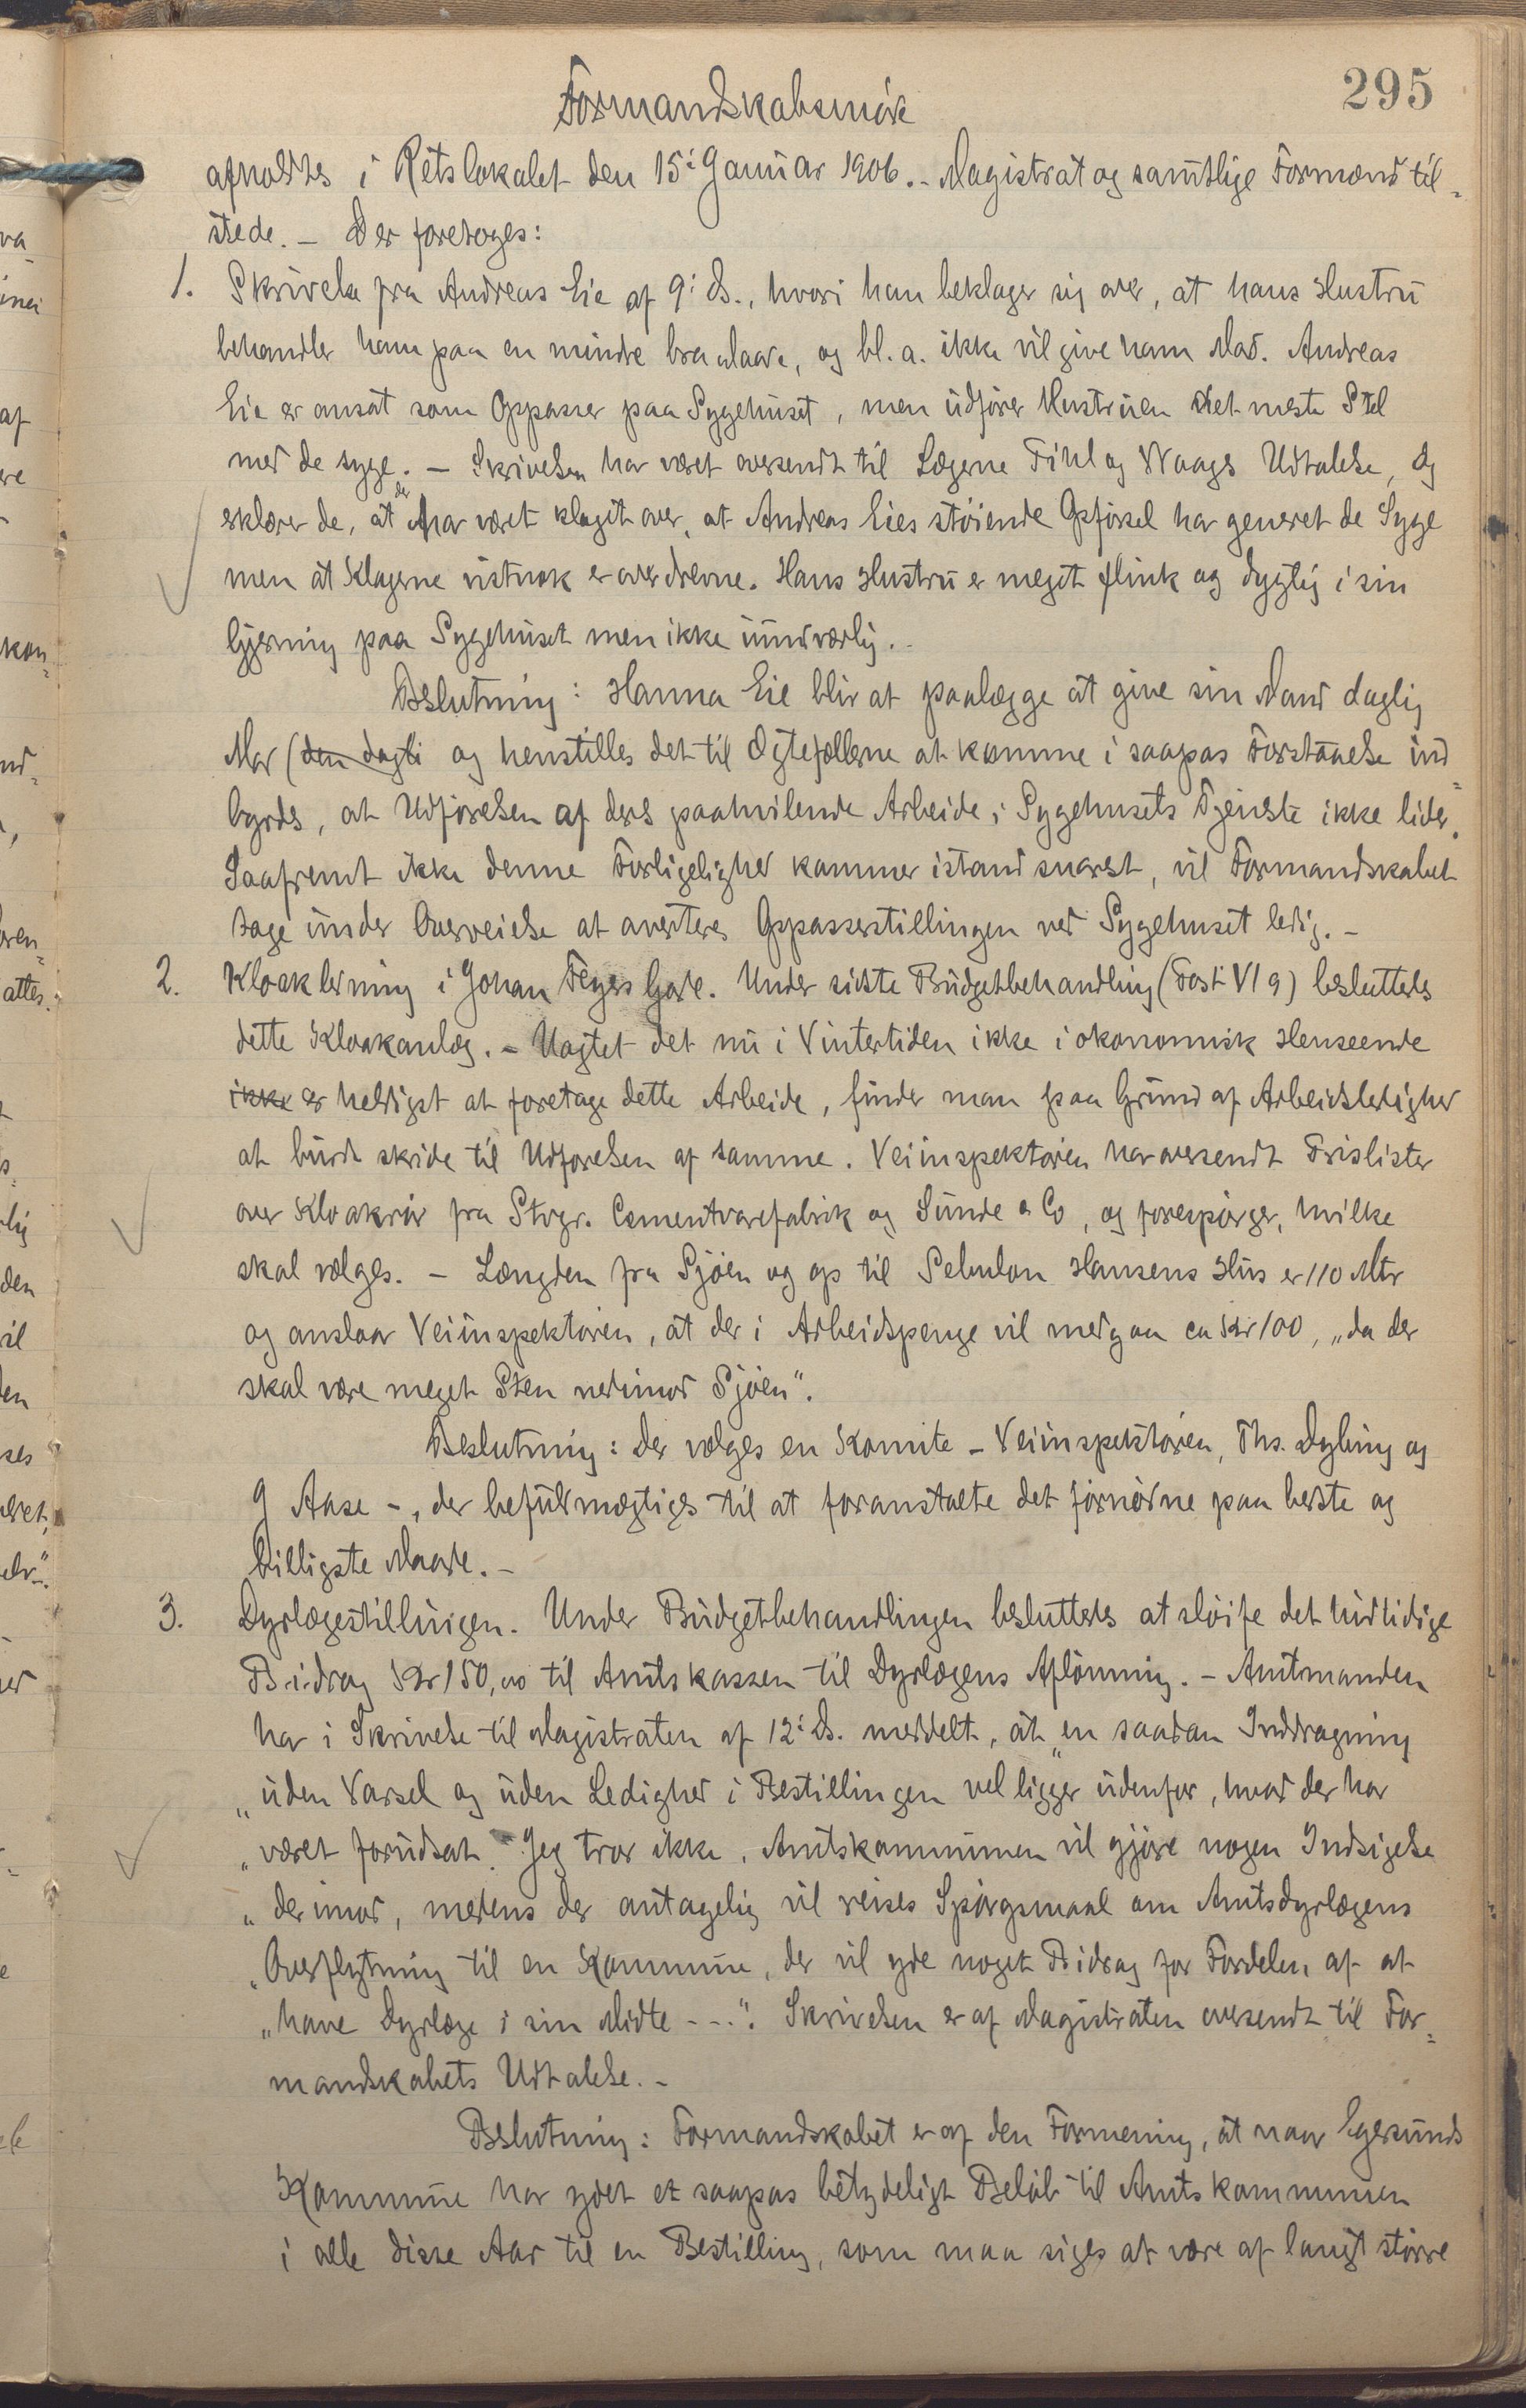 295
Formandskabsmöde
afholdtes i Retslokalet den 15: Januar 1906. - Magistrat og samtlige Formænd til-
stede. - Der foretoges:
1. Skrivelse fra Andreas Eie af 9: ds., hvori han beklager sig over, at hans Hustru
behandler ham paa en mindre bra Maade, og bl. a. ikke vil give ham Mad. Andreas
Eie er ansat som Oppasser paa Sygehuset, men udförer Hustruen det meste Stel
med de syge. - Skrivelsen har været oversendt til Lægerne Fihl og Waages Udtalelse, og
erklærer de, at der har været klaget over, at Andreas Eies stöiende Opförsel har generet de Syge
men at Klagerne vistnok er overdrevne. Hans Hustru er meget flink og dygtig i sin
Gjerning paa Sygehuset men ikke uundværlig. -
Beslutning: Hanna Eie blir at paalægge at give sin Mand daglig
Mad (den dagli og henstilles det til Ægtefællerne at komme i saapas Forstaaelse ind-
byrdes, at Udförelsen af deres paahvilende Arbeide i Sygehusets Tjeneste ikke lider.
Saafremt ikke denne Forligelighed kommer istand snarest, vil Formandskabet
tage under Overveielse at avertere Oppasserstillingen ved Sygehuset ledig. -
2. Kloakledning i Johan Feyers Gade. Under sidste Budgetbehandling (Post VI 9) besluttedes
dette Kloakanlæg. - Uagtet det nu i Vintertiden ikke i økonomisk Henseende
ikke er heldigst at foretage dette Arbeide, finder man paa Grund af Arbeidsledighed
at burde skride til Udförelsen af samme. Veiinspektören har oversendt Prislister
over Kloakrör fra Stvgr. Cementvarefabrik og Sunde & Co, og forespörger, hvilke
skal vælges. - Længden fra Sjöen og op til Sebulon Hansens Hus er 110 Mtr
og anslaar Veiinspektören, at der i Arbeidspenge vil medgaa ca Kr 100, „da der
skal være meget Sten nedimod Sjöen".
Beslutning: Der vælges en Komite - Veiinspektören, Ths. Dybing og
J Aase -, der befuldmægtiges til at foranstalte det fornödne paa bedste og
billigste Maade. -
3. Dyrlægestillingen. Under Budgetbehandlingen besluttedes at slöife det hidtidige
Bidrag Kr 150,00 til Amtskassen til Dyrlægens Aflönning. - Amtmanden
har i Skrivelse til Magistraten af 12: ds. meddelt, at „en saadan Inddragning
„uden Varsel og uden Ledighed i Bestillingen vel ligger udenfor, hvad der har
„været forudsat. - Jeg tror ikke, Amtskommunen vil gjöre nogen Indsigelse
„derimod, medens der antagelig vil reises Spörgsmaal om Amtsdyrlægens
„Overflytning til en Kommune, der vil yde noget Bidrag for Fordelen af at
„have Dyrlæge i sin Midte - - -". Skrivelsen er af Magistraten oversendt til For-
mandskabets Udtalelse. -
Beslutning: Formandskabet er af den Formening, at naar Egersunds
Kommune har ydet et saapas betydeligt Belöb til Amtskommunen
i alle disse Aar til en Bestilling, som maa siges at være af langt större